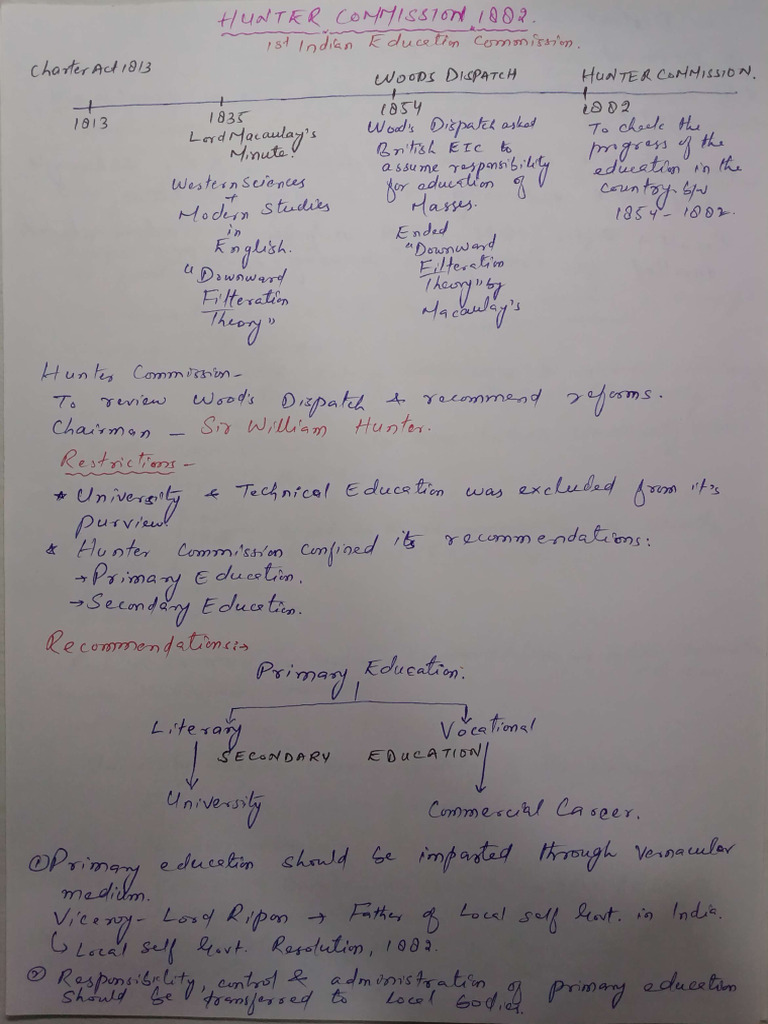 HUNTER COMMISSION 1882.
1st Indian Education Commission.
Charter Act 1813
WOODS DISPATCH
HUNTER COMMISSION.
1813
1835
1854
1882
Lord Macaulay's
Minute.
Western Sciences
+
Modern Studies
in
English.
"Downward
Filteration
Theory"
Wood's Dispatch asked
British EIC to
assume responsibility
for education of
Masses.
Ended
"Downward
Filteration
Theory" by
Macaulay's
To check the
progress of the
education in the
country b/w
1854 - 1882.
Hunter Commission-
To review Wood's Dispatch & recommend reforms.
Chairman - Sir William Hunter.
Restrictions-
* University & Technical Education was excluded from it's
purview.
* Hunter Commission confined its recommendations:
→ Primary Education.
→ Secondary Education.
Recommendations:→
Primary Education.
Literary
Vocational
SECONDARY EDUCATION
University
Commercial Career.
① Primary education should be imparted through vernacular
medium.
Viceroy - Lord Ripon → Father of Local self Govt. in India.
↳ Local Self Govt. Resolution, 1882.
② Responsibility, control & administration of primary education
should be transferred to Local bodies.